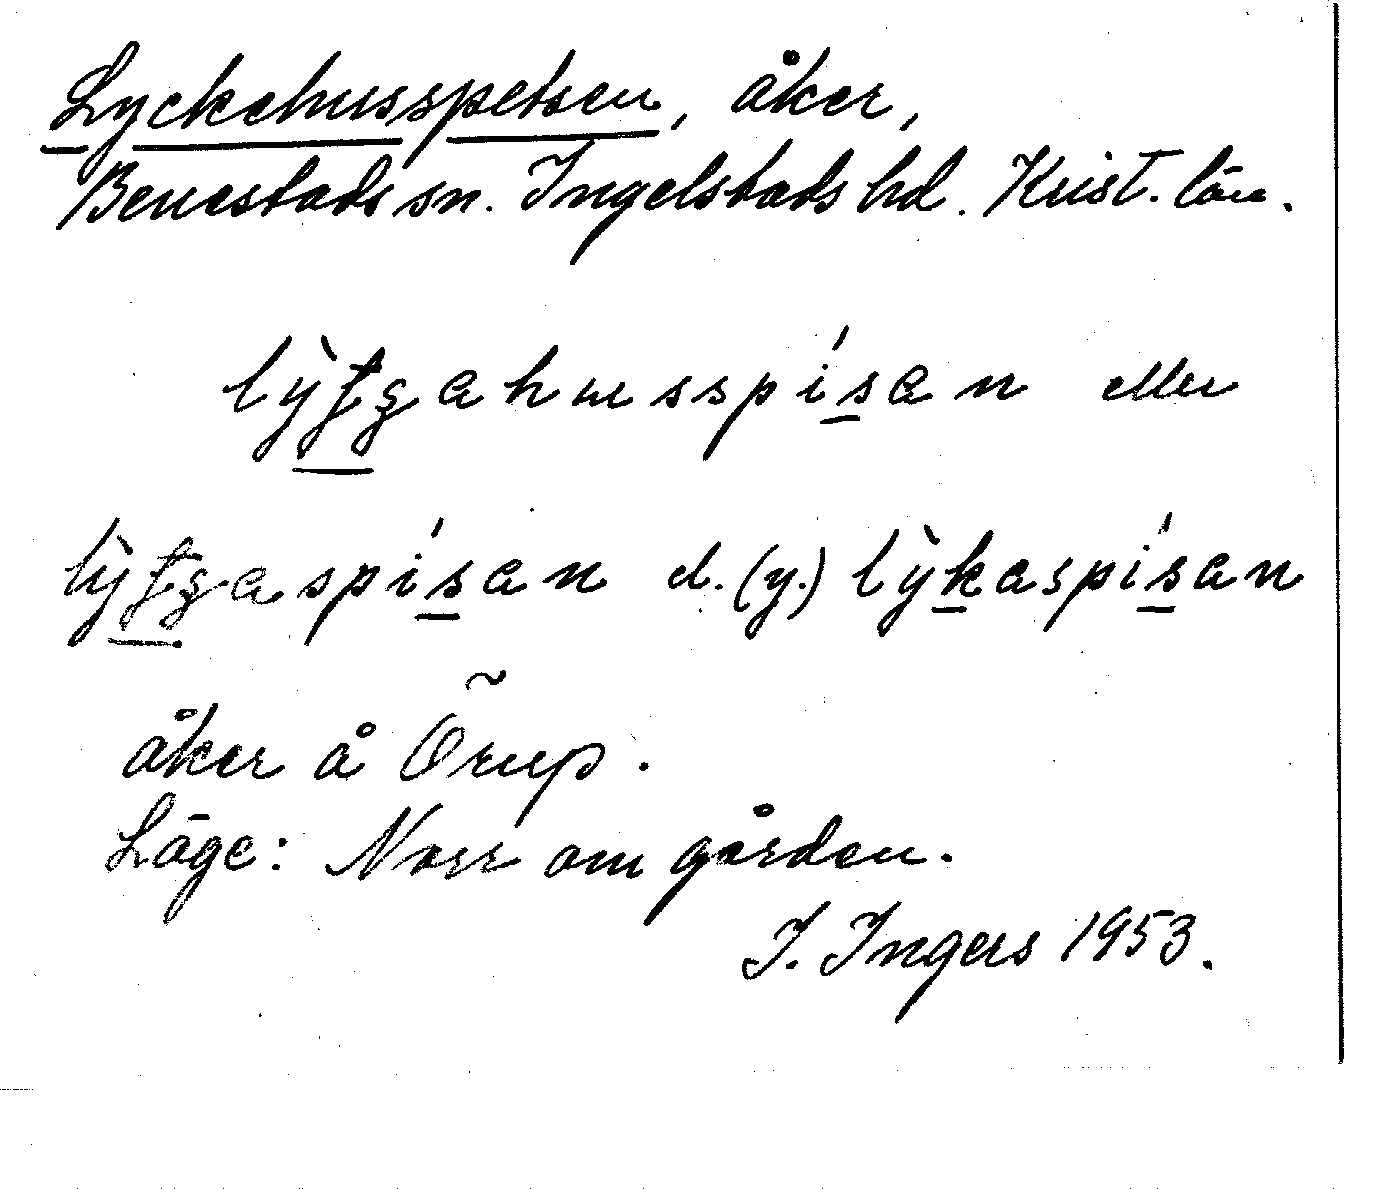 Lyckehusspetsen, åker,
Benestads sn. Ingelstads hd. Krist. län.
eller
d. (y.) lỳkaspísan
åker å Örup.
Läge: Norr om gården.
I. Ingers 1953.